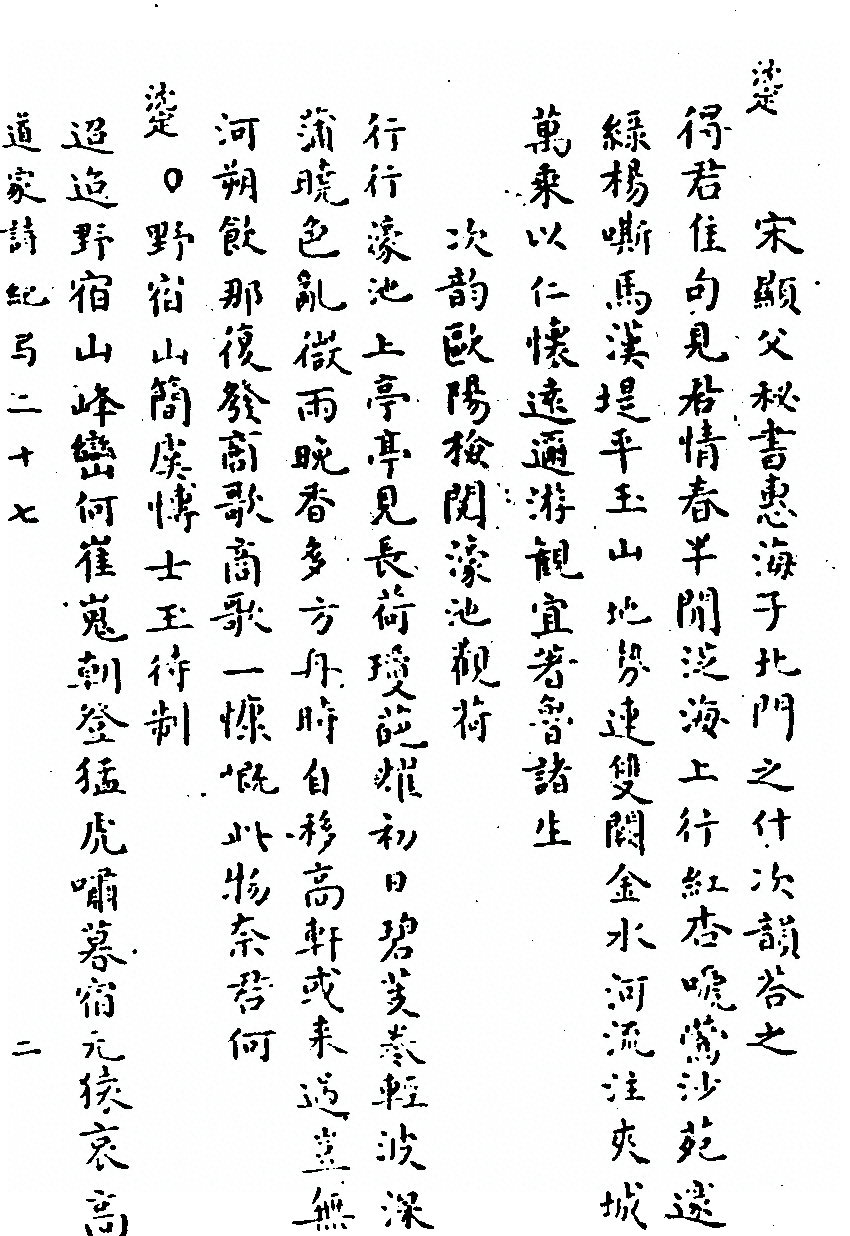 宋顯父秘書惠海子北門之什次韻荅之
得君佳句見君情春半閒泛海上行紅杏嗁鶯沙苑邃
綠楊嘶馬漢堤平玉山地勢連雙闕金水河流注夾城
萬乘以仁懷遠邇游觀宜著魯諸生
次韵歐陽檢閱濠池觀荷
行行濠池上亭亭見長荷瓊葩耀初日碧芰卷輕波深
蒲曉色亂微雨晚香多方舟時自移高軒或来過豈無
河朔飲那復發商歌商歌一慷慨此物奈君何
○野宿山簡虞博士王待制
迢迢野宿山峰巒何崔嵬朝登猛虎嘯暮宿元猿哀高
道家詩紀弓二十七 二